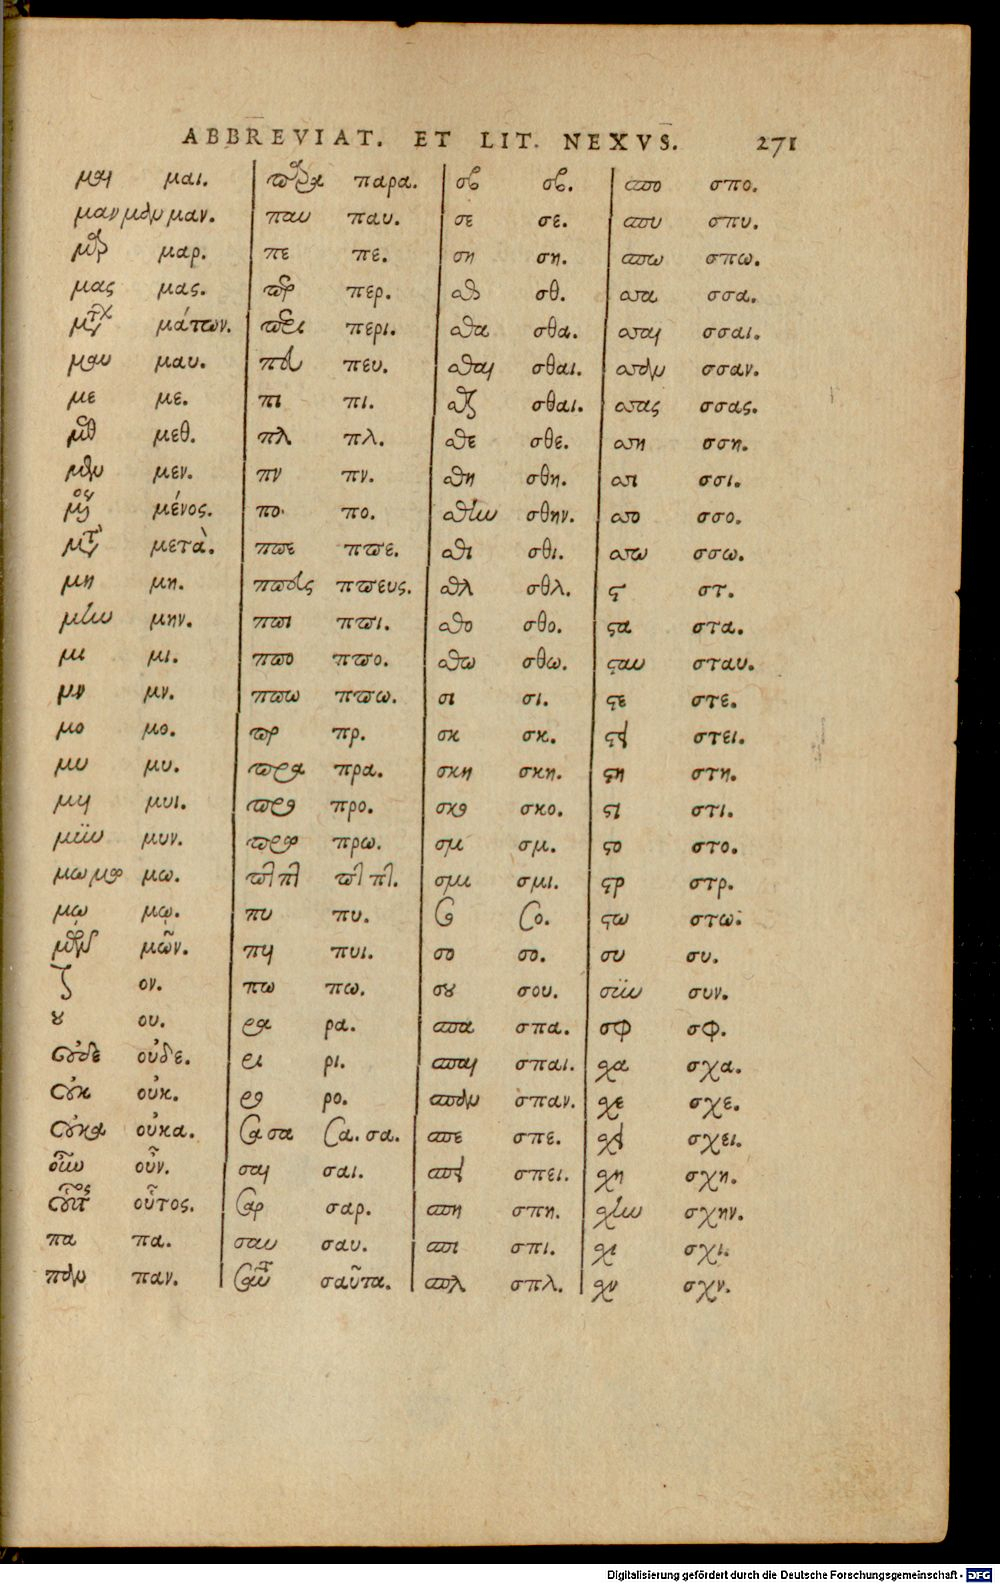 ABBREVIAT. ET LIT. NEXVS. 271
μαι μαι.
μαν μαν μαν.
μαρ μαρ.
μας μας.
μάτων.
μαυ μαυ.
με με.
μεθ μεθ.
μεν μεν.
μένος.
μετὰ.
μη μη.
μην μην.
μι μι.
μν μν.
μο μο.
μυ μυ.
μυι μυι.
μυν μυν.
μω μω μω.
μῳ μῳ.
μῶν μῶν.
ον.
ȣ ου.
οὐδε οὐδε.
οὐκ οὐκ.
οὐκα οὐκα.
οὖν οὖν.
οὗτος οὗτος.
πα πα.
παν παν.
παρα παρα.
παυ παυ.
πε πε.
περ περ.
περι περι.
πευ πευ.
πι πι.
πλ πλ.
πν πν.
πο. πο.
πϖε πϖε.
πϖευς πϖευς.
πϖι πϖι.
πϖο πϖο.
πϖω πϖω.
ϖρ πρ.
ϖρα πρα.
ϖρο προ.
ϖρω πρω.
ϖλ πλ ϖλ πλ.
πυ πυ.
πυι πυι.
πω πω.
ρα ρα.
ρι ρι.
ρο ρο.
Ϲα σα Ϲα. σα.
σαι σαι.
Ϲαρ σαρ.
σαυ σαυ.
σαῦτα.
σϐ σϐ.
σε σε.
ση ση.
σθ σθ.
σθα σθα.
σθαι σθαι.
σθαι.
σθε σθε.
σθη σθη.
σθην σθην.
σθι σθι.
σθλ σθλ.
σθο σθο.
σθω σθω.
σι σι.
σκ σκ.
σκη σκη.
σκο σκο.
σμ σμ.
σμι σμι.
Ϲο Ϲο.
σο σο.
σȣ σου.
σπα σπα.
σπαι σπαι.
σπαν σπαν.
σπε σπε.
σπει σπει.
σπη σπη.
σπι σπι.
σπλ σπλ.
σπο σπο.
σπυ σπυ.
σπω σπω.
σσα σσα.
σσαι σσαι.
σσαν σσαν.
σσας σσας.
σση σση.
σσι σσι.
σσο σσο.
σσω σσω.
ϛ στ.
ϛα στα.
ϛαυ σταυ.
ϛε στε.
ϛει στει.
ϛη στη.
ϛι στι.
ϛο στο.
ϛρ στρ.
ϛω στω.
συ συ.
συν συν.
σφ σφ.
σχα σχα.
σχε σχε.
σχει σχει.
σχη σχη.
σχην σχην.
σχι σχι.
σχν σχν.
Digitalisierung gefördert durch die Deutsche Forschungsgemeinschaft - DFG